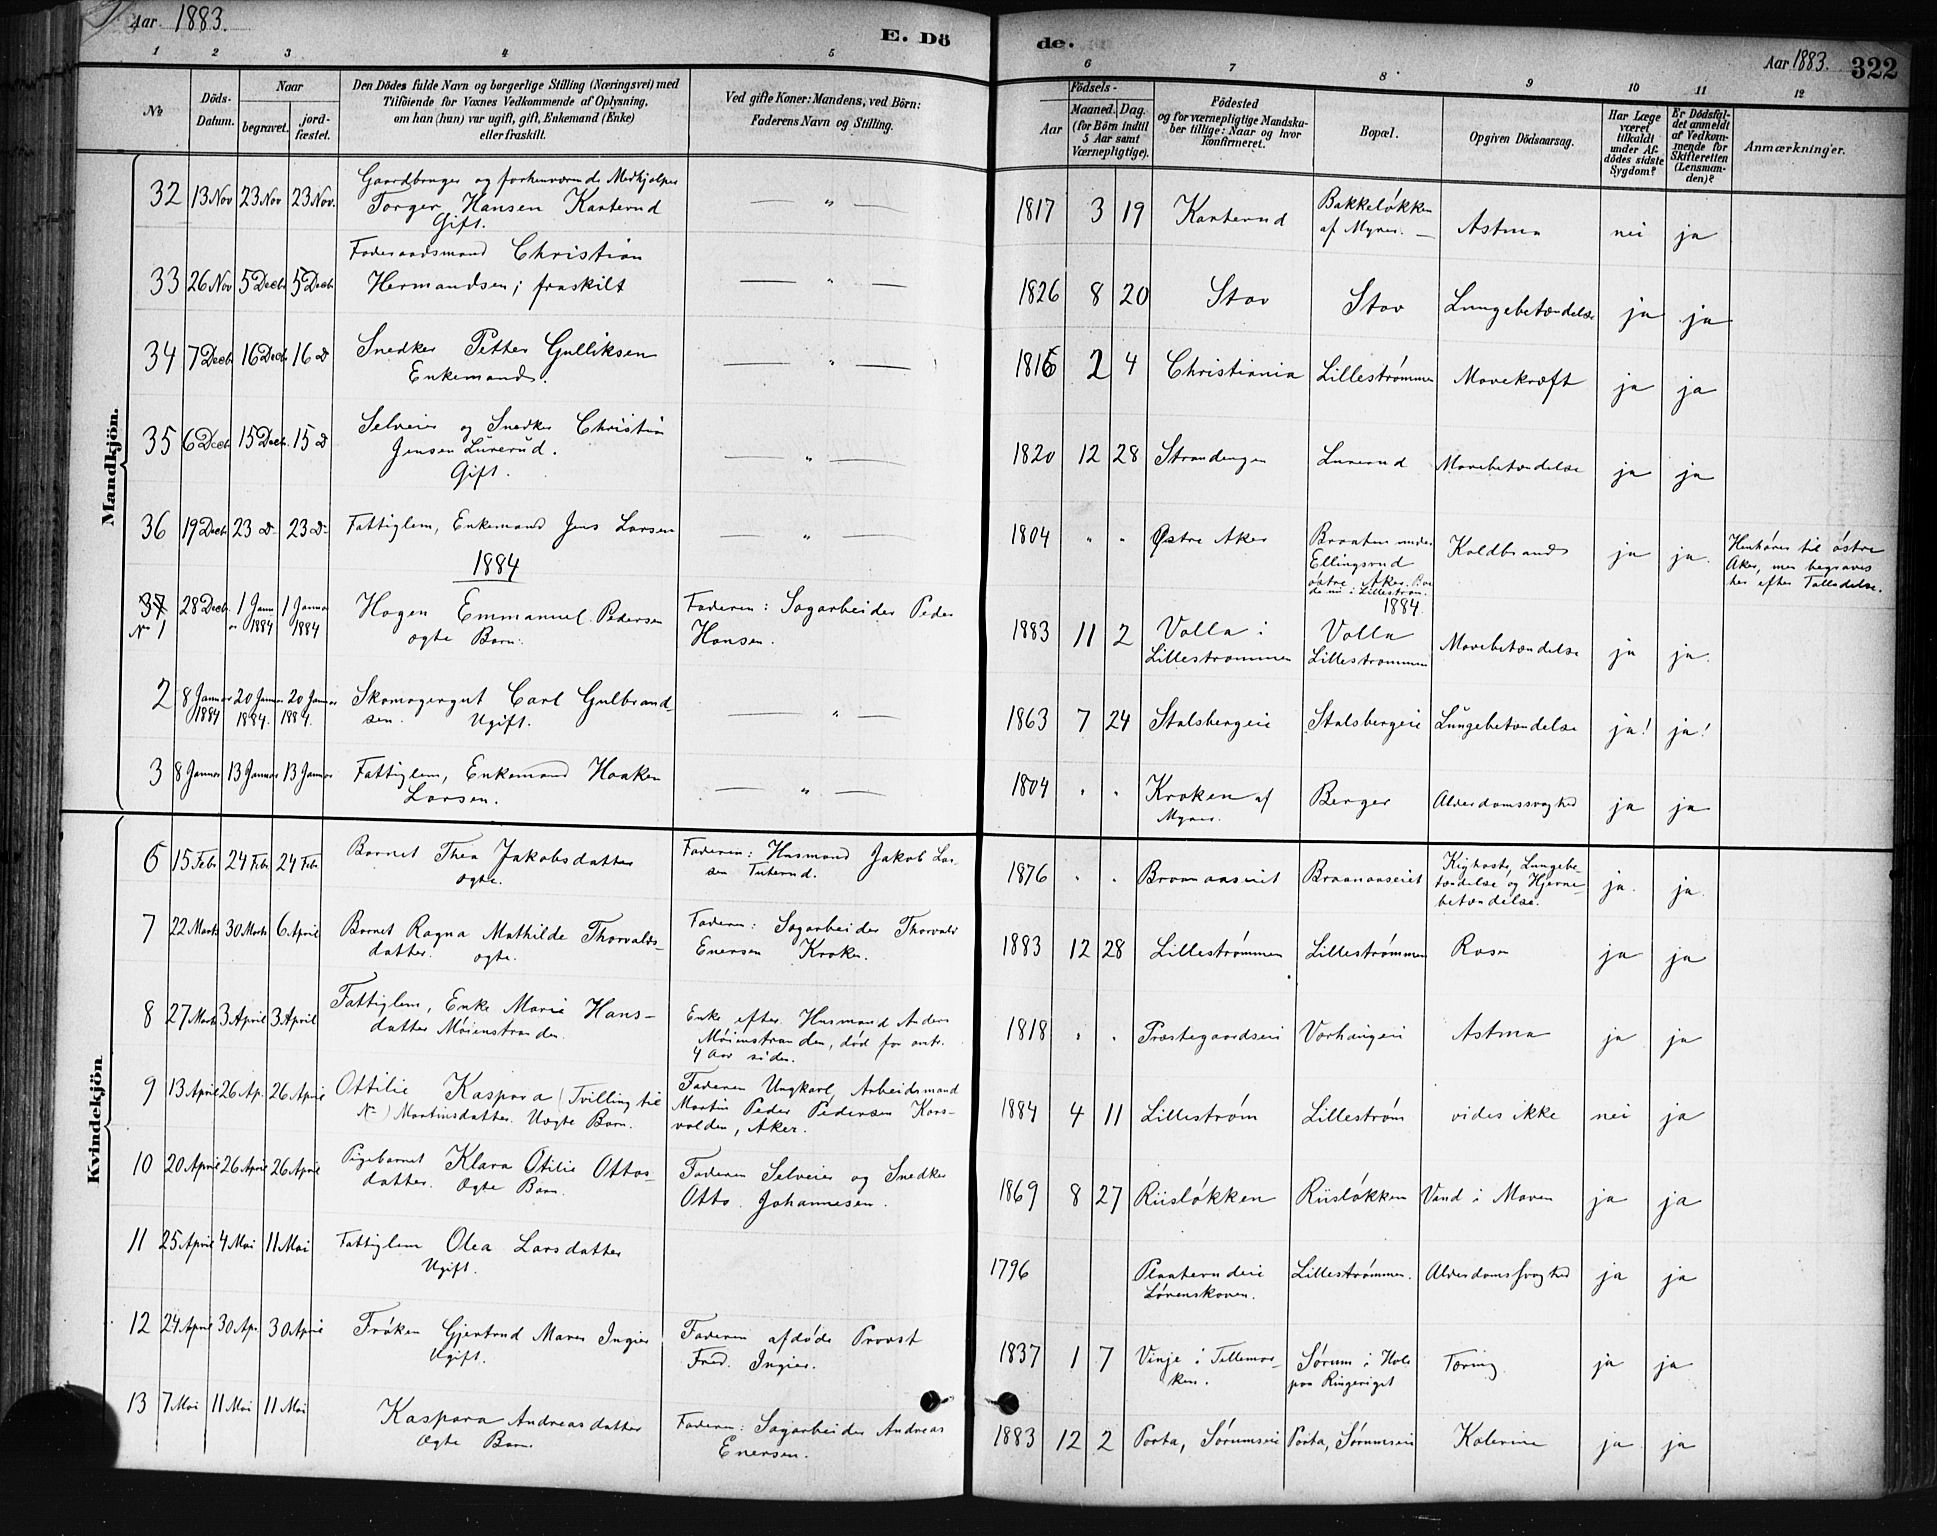 Aar 1883.
E. Döde.
Aar 1883. 322
1 2 3 4 5 6 7 8 9 10 11 12
No
Döds-Datum.
Naar
begravet.
jord-fæstet.
Den Dödes fulde Navn og borgerlige Stilling (Næringsvei) med
Tilföiende for Voxnes Vedkommende af Oplysning,
om han (hun) var ugift, gift, Enkemand (Enke)
eller fraskilt.
Ved gifte Koner: Mandens, ved Börn:
Faderens Navn og Stilling.
Födsels-
Aar
Maaned. Dag.
(for Börn indtil
5 Aar samt
Værnepligtige).
Födested
og for værnepligtige Mandska-
ber tillige: Naar og hvor
konfirmeret.
Bopæl.
Opgiven Dödsaarsag.
Har Læge
været
tilkaldt
under Af-
dödes sidste
Sygdom?
Er Dödsfal-
det anmeldt
af Vedkom-
mende for
Skifteretten
(Lensman-
den)?
Anmærkninger.
Mandkjön.
32 13 Nov 23 Nov 23 Nov. Gaardbruger og forhenværende Medhjelper
Torger Hansen Kaaterud
Gift.
— " — 1817 3 19 Kaaterud Bakkeløkken
af Myrer. Astma nei ja
33 26 Nov 5 Decb 5 Decb Føderaadsmand Christian
Hermandsen; fraskilt
— " — 1826 8 20 Stav Stav Lungebetændelse ja ja
34 7 Decb 16 Decb 16 D Snedker Petter Gulliksen
Enkemand.
— " — 1816 2 4 Christiania Lillestrømmen Mavekræft ja ja
35 6 Decb 15 Decb. 15 D Selveier og Snedker Christian
Jensen Lurerud.
Gift.
— " — 1820 12 28 Strandengen Lurerud Mavebetændelse ja ja
36 19 Decb 23 D 23 D Fattiglem, Enkemand Jens Larsen
— " — 1804 " " Østre Aker Braaten under
Ellingsrud
østre Aker. Boe
de nu i Lillestrøm. Koldbrand ja ja. Henhører til østre
Aker, men begraves
her efter Tilladelse.
1884
1884
37
No 1 28 Decb 1 Janu
1884 1 Januar
1884 Hagen Emmanuel Pedersen
ægte Barn.
Faderen: Sagarbeider Peder
Hansen.
1883 11 2 Volla i
Lillestrømmen Volla
Lillestrømmen Mavebetændelse ja ja.
2 8 Januar
1884 20 Januar
1884. 20 Januar
1884. Skomagergut Carl Gulbrand-
sen. Ugift.
— " — 1863 7 24 Stalsbergeie Stalsbergeie Lungebetændelse ja! ja!
3 8 Januar 13 Januar 13 Januar Fattiglem, Enkemand Haaken
Larsen.
— " — 1804 " " Kroken af
Myrer. Berger Alderdomssvaghed ja ja
Kvindekjön
6 15 Febr 24 Febr 24 Febr Barnet Thea Jakobsdatter
ægte.
Faderen: Husmand Jakob Lar-
sen Tuterud.
1876 " " Braanaaseiet Braanaaseiet Kighoste, Lungebe-
tændelse og Hjerne-
betændelse. ja. ja.
7 22 Marts 30 Marts 6 April Barnet Ragna Mathilde Thorvalds-
datter. ægte.
Faderen: Sagarbeider Thorvald
Enersen Kroken.
1883 12 28 Lillestrømmen Lillestrømmen Rosen ja ja
8 27 Marts 3 April 3 April Fattiglem, Enke Marie Hans-
datter Møienstranden.
Enke efter Husmand Anders
Møienstranden, død for omtr.
4 Aar siden.
1818 " " Præstegaardseie Varhaugeie Astma ja ja
9 13 April 26 Ap. 26 April Ottilie Kaspara (Tvilling til
No ) Martinsdatter. Uægte Barn.
Faderen Ungkarl, Arbeidsmand
Martin Peder Pedersen Kars-
volden, Aker.
1884 4 11 Lillestrøm Lillestrøm vides ikke nei ja
10 20 April 26 April 26 April Pigebarnet Klara Otilie Ottos-
datter. Ægte Barn.
Faderen Selveier og Snedker
Otto Johannesen.
1869 8 27 Riisløkken Riisløkken Vand i Maven ja ja
11 25 April 4 Mai 11 Mai Fattiglem Olea Larsdatter
Ugift.
1796 Plaaterudeie
Lørenskoven. Lillestrømmen. Alderdomssvaghed ja ja
12 24 April 30 Apr. 30 April Frøken Gjertrud Maren Ingier
Ugift.
Faderen afdøde Provst
Fred. Ingier.
1837 1 7 Vinje i Tellemar-
ken. Sørum i Hole
paa Ringeriget Tæring ja ja
13 7 Mai 11 Mai 11 Mai Kaspara Andreasdatter
Ægte Barn.
Faderen: Sagarbeider Andreas
Enersen.
1883 12 2 Porta, Sørumseie Porta, Sørumseie Kolerine ja ja